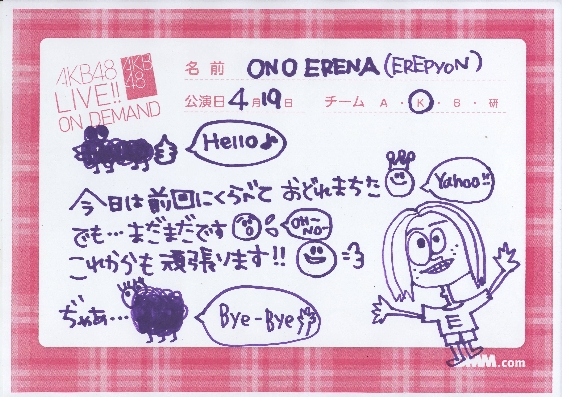 AKB48
LIVE!!
ON DEMAND
AKB
48
名前 ONO ERENA (EREPYON)
公演日 4月19日 チーム A・K・B・研
Hello♪
今日は前回にくらべて おどれまちた
Yahoo!!
でも…まだまだです
OH~
NO~
これからも頑張ります!!
E
ぢゃあ…
Bye-Bye
DMM.com